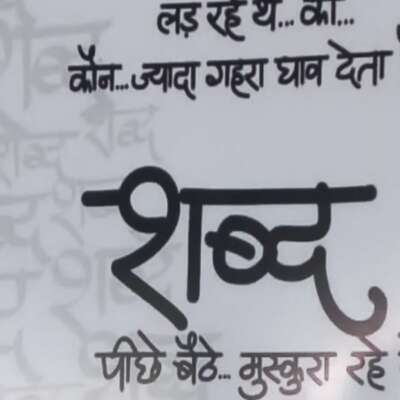 लड़ रहे थे... की...
कौन...ज्यादा गहरा घाव देता
शब्द
पीछे बैठे... मुस्कुरा रहे